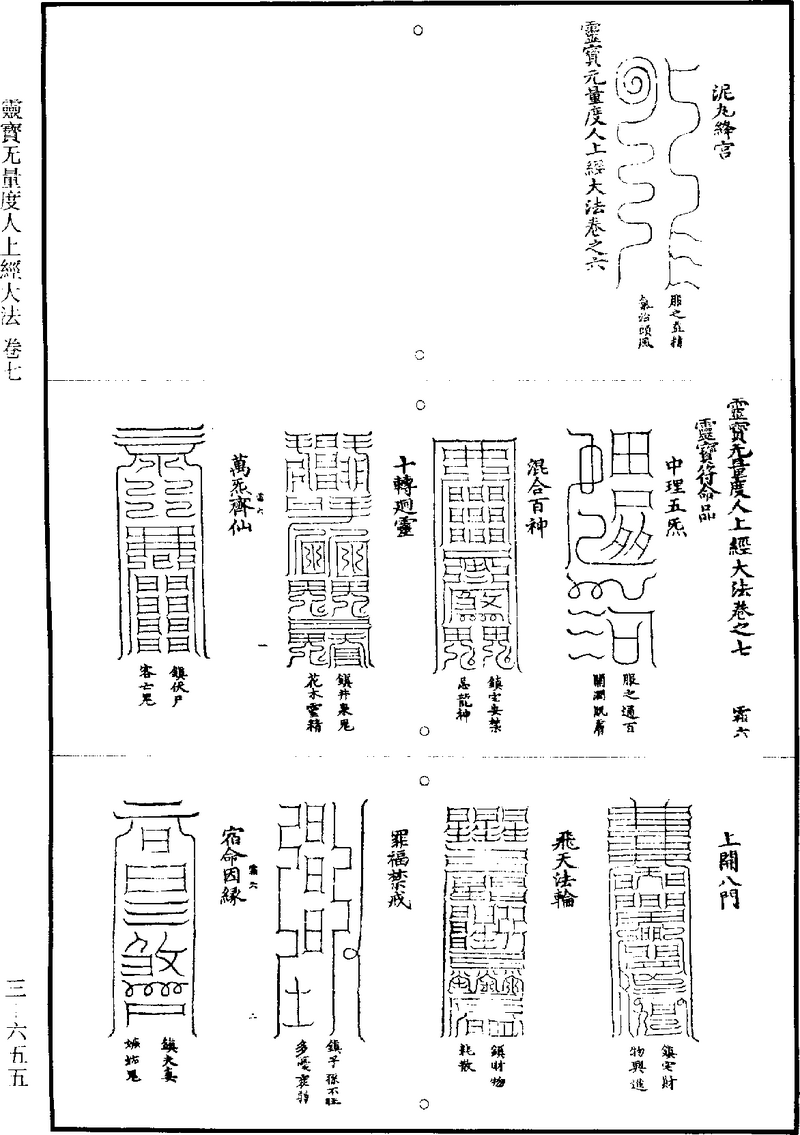 泥丸絳宮
服之益精
氣治頭風
靈寶无量度人上經大法卷之六
靈寶无量度人上經大法卷之七
霜六
靈寶符命品
中理五炁
服之通百
關潤肌膚
混合百神
鎮宅安禁
忌龍神
十轉迴靈
鎮井泉鬼
花木靈精
萬炁齊仙
霜六
一
鎮伏尸
客亡鬼
上開八門
鎮宅財
物興進
飛天法輪
鎮財物
耗散
罪福禁戒
鎮子孫不旺
多憂衰弱
宿命因緣
霜六
二
鎮夫妻
嫉妬鬼
靈寶无量度人上經大法 卷七
三-六五五